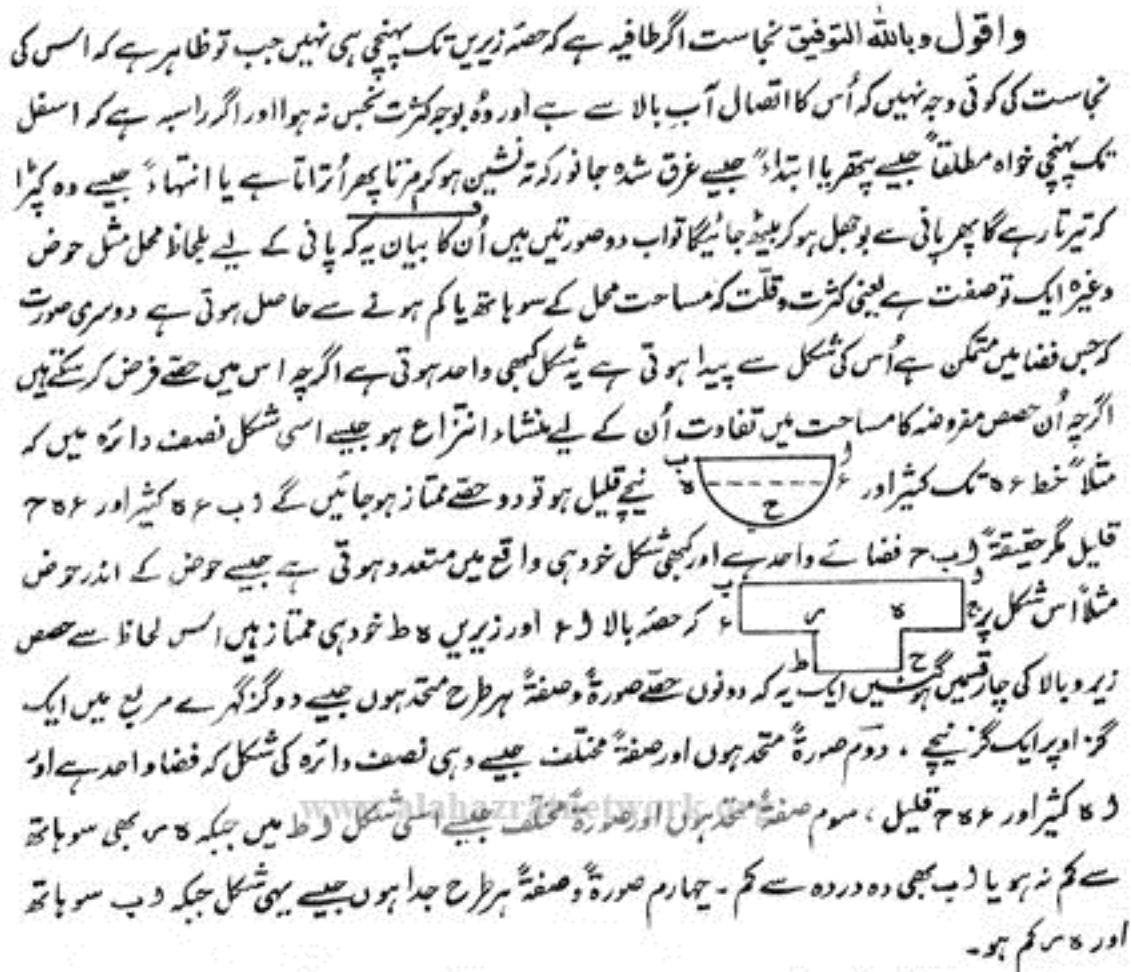 واقول وباللہ التوفیق نجاست اگر طافیہ ہے کہ حصہ زیریں تک پہنچی ہی نہیں جب تو ظاہر ہے کہ اس کی
نجاست کی کوئی وجہ نہیں کہ اُس کا اتصال آبِ بالا سے ہے اور وہ بوجہ کثرت نجس نہ ہوا اور اگر راسبہ ہے کہ اسفل
تک پہنچی خواہ مطلقاً جیسے پتھر یا ابتداءً جیسے غرق شدہ جانور کہ تہ نشین ہوکر مرتا پھر اُتراتا ہے یا انتہاءً جیسے وہ کپڑا
کہ تیرتا رہے گا پھر پانی سے بوجھل ہوکر بیٹھ جائیگا تو اب دو صورتیں ہیں اُن کا بیان یہ کہ پانی کے لیے بلحاظ محل مثل حوض
وغیرہ ایک تو صفت ہے یعنی کثرت وقلّت کہ مساحت محل کے سو ہاتھ یا کم ہونے سے حاصل ہوتی ہے دوسری صورت
کہ جس فضا میں متمکن ہے اُس کی شکل سے پیدا ہوتی ہے یہ شکل کبھی واحد ہوتی ہے اگرچہ اس میں حصے فرض کرسکتے ہیں
اگرچہ اُن حصص مفروضہ کا مساحت میں تفاوت اُن کے لیے منشاء انتزاع ہو جیسے اسی شکل نصف دائرہ میں کہ
مثلاً خط ء ہ تک کثیر اور ا ب ء ہ ح نیچے قلیل ہو تو دو حصے ممتاز ہوجائیں گے ا ب ء ہ کثیر اور ء ہ ح
قلیل مگر حقیقۃً ا ب ح فضائے واحد ہے اور کبھی شکل خود ہی واقع میں متعدد ہوتی ہے جیسے حوض کے اندر حوض
مثلاً اس شکل پر ا ب ج ء ہ ر ح ط کہ حصہ بالا ا ء اور زیریں ہ ط خود ہی ممتاز ہیں اس لحاظ سے حصص
زیر وبالا کی چار قسمیں ہوگئیں ایک یہ کہ دونوں حصے صورۃً وصفۃً ہر طرح متحد ہوں جیسے دو گز گہرے مربع میں ایک
گز اوپر ایک گز نیچے ، دوم صورۃً متحد ہوں اور صفۃً مختلف جیسے وہی نصف دائرہ کی شکل کہ فضا واحد ہے اور
ا ہ کثیر اور ء ہ ح قلیل ، سوم صفۃً متحد ہوں اور صورۃً مختلف جیسے اسی شکل ا ط میں جبکہ ہ ر بھی سو ہاتھ
سے کم نہ ہو یا ا ب بھی دہ در دہ سے کم ۔ چہارم صورۃً وصفۃً ہر طرح جدا ہوں جیسے یہی شکل جبکہ ا ب سو ہاتھ
اور ہ ر کم ہو۔
www.alahazratnetwork.org